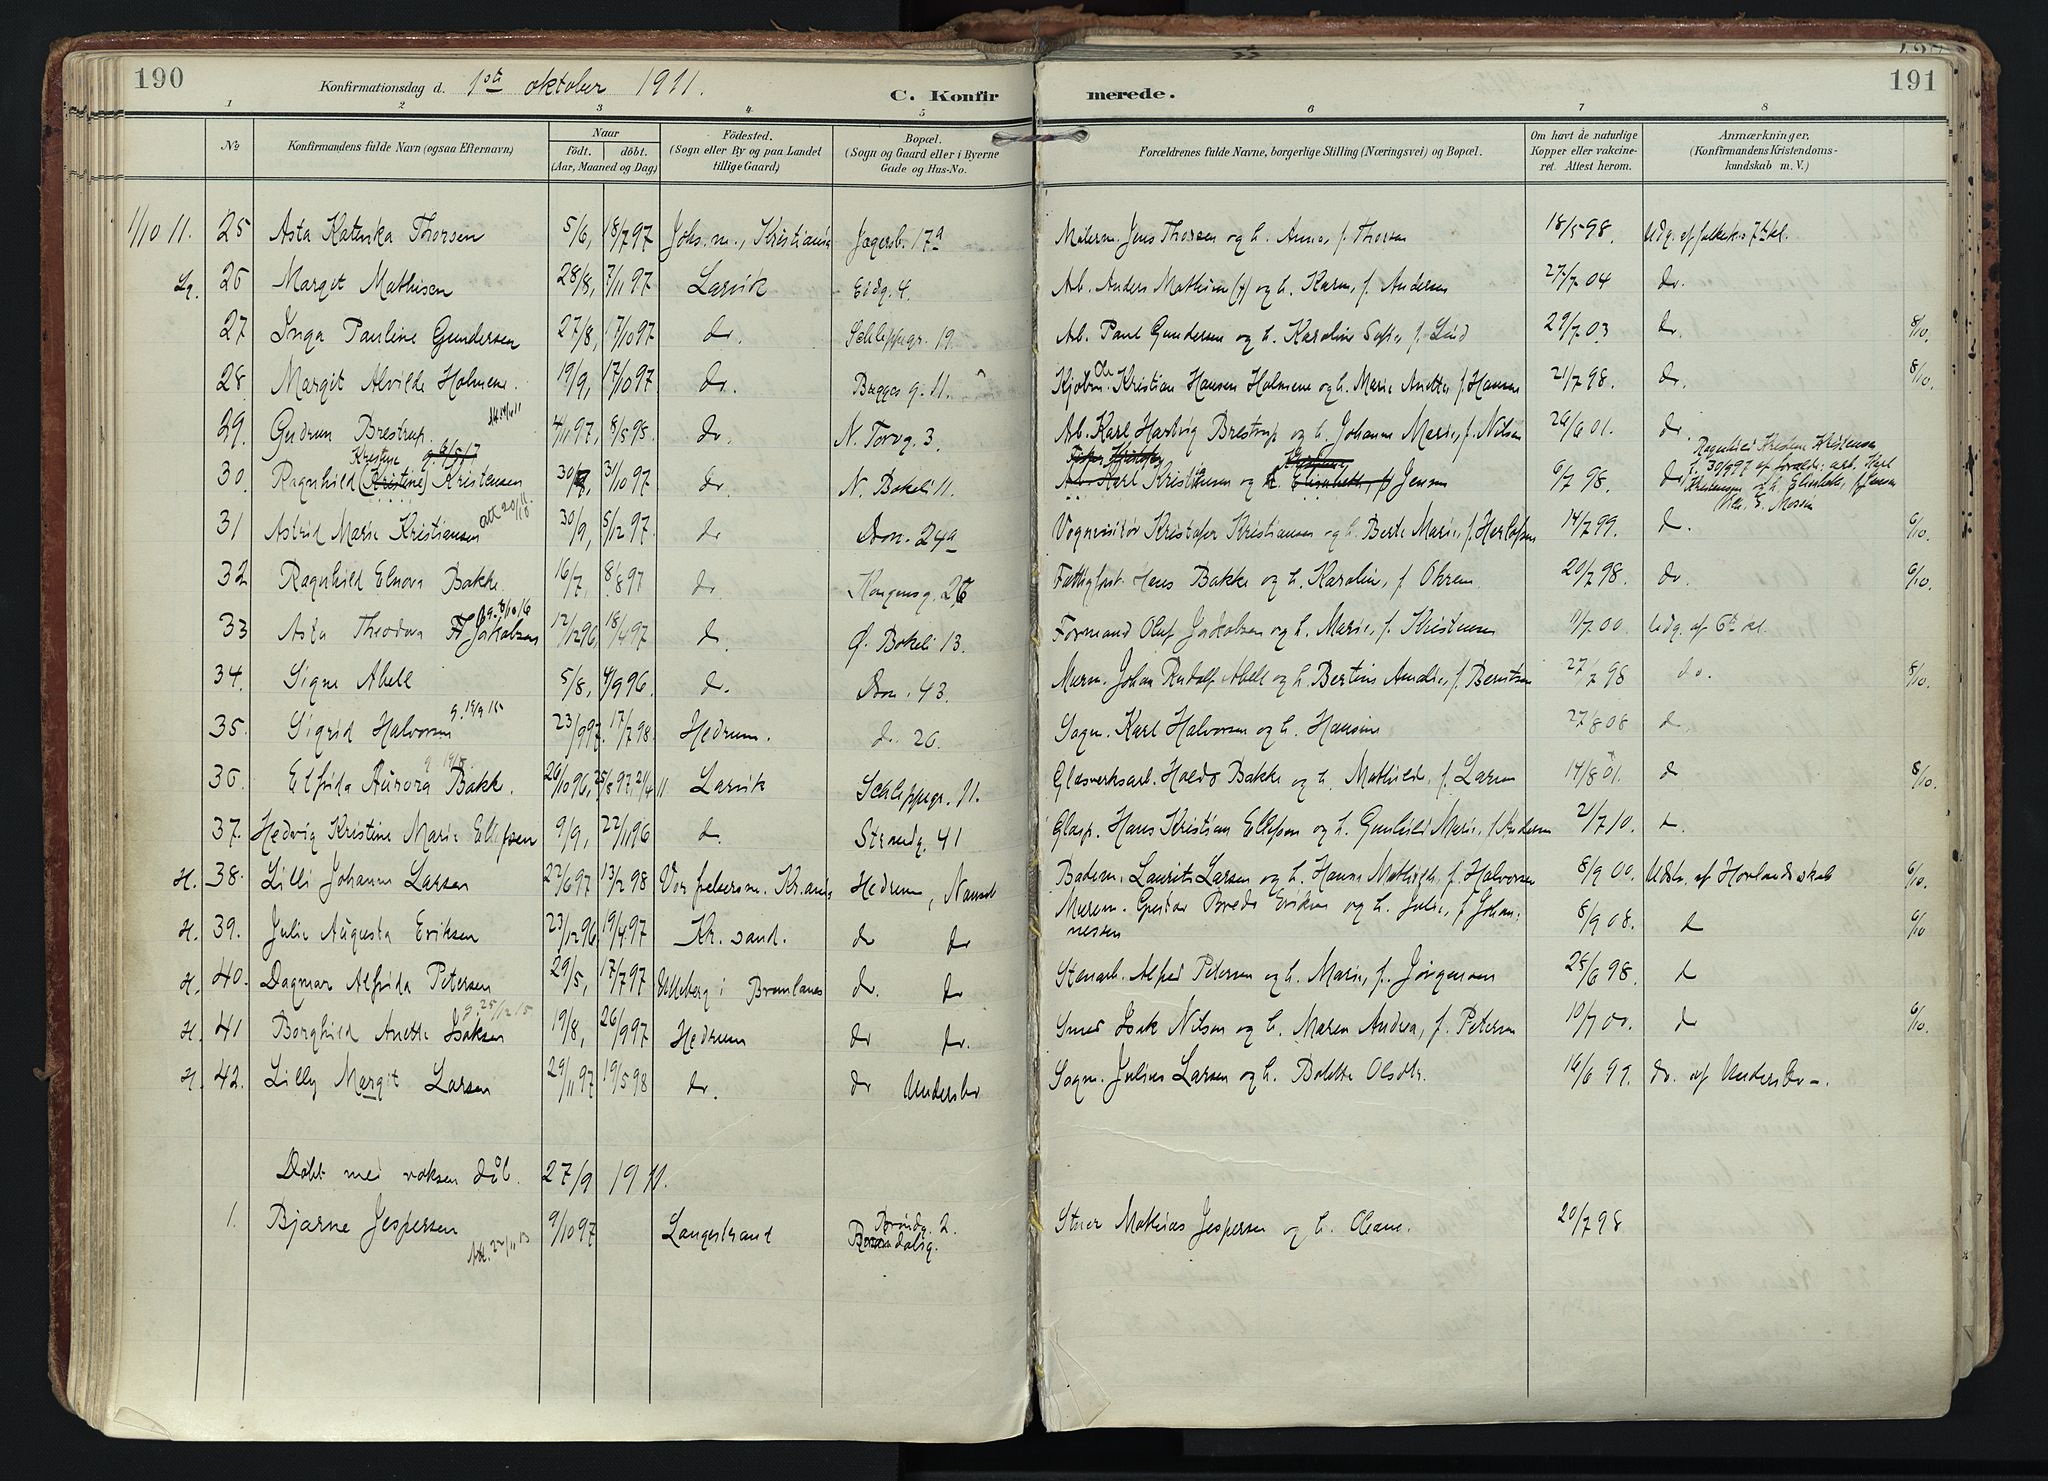 190
Konfirmationsdag d. 1ste oktober 1911.
C. Konfir
merede.
191
1 2 3 4 5 6 7 8
No
Konfirmandens fulde Navn (ogsaa Efternavn)
Naar
født. døbt.
(Aar, Maaned og Dag)
Födested.
(Sogn eller By og paa Landet
tillige Gaard)
Bopæl.
(Sogn og Gaard eller i Byerne
Gade og Hus-No.
Forældrenes fulde Navne, borgerlige Stilling (Næringsvei) og Bopæl.
Om havt de naturlige
Kopper eller vakcine-
ret. Attest herom.
Anmærkninger,
(Konfirmandens Kristendoms-
kundskab m. V.)
1/10 11. 25 Asta Katinka Thorsen 5/6, 18/7 97 Johs. m., Kristiania Jegersb. 17a Malerm. Jens Thorsen og h. Anna, f. Thorsen 18/5-98. Udg. af folkesk. 7de kl.
Lg. 26 Margit Mathisen 28/8, 7/11 97 Larvik Eidg. 4. Arb. Anders Mathisen (†) og h. Karen, f. Andersen 27/7-04 do.
27 Inga Pauline Gundersen 27/8, 17/10 97 do. Schleppegr. 19. Arb. Paul Gundersen og h. Karoline Sofie, f. Lind 29/7 03 do. 8/10.
28. Margit Alvilde Holmene. 19/9, 17/10 97. do. Bugges g. 11. Kjøbm. Ole Kristian Hansen Holmene og h. Marie Anette, f. Hansen 21/7 98. do. 8/10.
29. Gudrun Brestrup. 4/11 97, 8/5 98. do. N. Torvg. 3. Arb. Karl Hartvig Brestrup og h. Johanne Marie, f. Nilsen 26/6 01. do.
30. Ragnhild (Kristine) Kristensen 31/10 97 do. N. Bokeli 11. Arb. Karl Kristensen og h. Elisabeth, f. Jensen 6/7 98. do
Ragnhild Kristine Kristensen
f. 30/9 97 af foreldr: arb. Karl
Kristensen og h. Elisabeth, f. Jensen
31 Astrid Marie Kristiansen 30/9, 5/12 97 do Do. 24a Vognvisitør Kristofer Kristiansen og h. Berte Marie, f. Herlofsen 14/7 99. do. 6/10.
32 Ragnhild Elnora Bakke 16/7, 8/8 97 do. Kongensg. 26 Fattigfor. Hans Bakke og h. Karoline, f. Ohren 20/7 98. do. 6/10.
33 Asta Theodora Jakobsen g. 8/10 16 12/12 96, 18/4 97 do. Ø. Bokeli 13. Formand Oluf Jakobsen og h. Marie, f. Kristensen 9/7 00. Udg. af 6te kl.
34. Signe Abell 5/8, 4/9 96. do. Do. 43 Murm. Johan Rudolf Abell og h. Bertine Amalie, f. Berntsen 27/7 98 do. 8/10.
35. Sigrid Halvorsen g. 19/9 15 23/9 97. 17/7 98. Hedrum. do. 20. Sagm. Karl Halvorsen og h. Hansine 27/8 08 do
36. Elfrida Aurora Bakke. 26/10 96, 25/8 97, 21/4 11 Larvik Schleppegr. 11. Glasverksarb. Haldo Bakke og h. Mathilde, f. Larsen 14/8 01. do 8/10.
37. Hedvig Kristine Marie Ellefsen 9/9, 22/11 96 do. Strandg. 41 Glasp. Hans Kristian Ellefsen og h. Gunhild Marie, f. Andersen 21/7 10. do.
H. 38. Lilli Johanne Larsen 22/6 97 13/2 98 Vor frelsersm. Kr.ania Hedrum, Nanset Badem. Laurits Larsen og h. Hanna Mathilde, f. Halvorsen 8/9 00. Udsk. af Hovlandsskole 6/10.
H. 39. Julie Augusta Eriksen 23/12 96 19/4 97 Kr. sand. do do Murm. Gustav Bredo Eriksen og h. Julie, f. Johan-
nessen 8/9 08. do 6/10
H. 40. Dagmar Alfrida Petersen 29/5, 17/7 97 Veleberg i Brunlanes do. do Stenarb. Alfred Petersen og h. Marie, f. Jørgensen 28/6 98. do
H. 41 Borghild Anette Isaksen g. 25/12 15 19/8, 26/9 97 Hedrum do do. Smed Isak Nilsen og h. Maren Andrea, f. Petersen 10/7 00. do 6/10.
H. 42. Lilly Margit Larsen 29/11 97 19/5 98 do. do Undersbo Sagm. Julius Larsen og h. Bolette Olsdtr. 16/6 99. do. af Undersbo-.
Døbt med voksen dåb. 27/9 1911.
1. Bjarne Jespersen 9/10 97 Langestrand Brøndg. 2. Stuer Mathias Jespersen og h. Oleane. 20/7 98
Att. 22/11 13